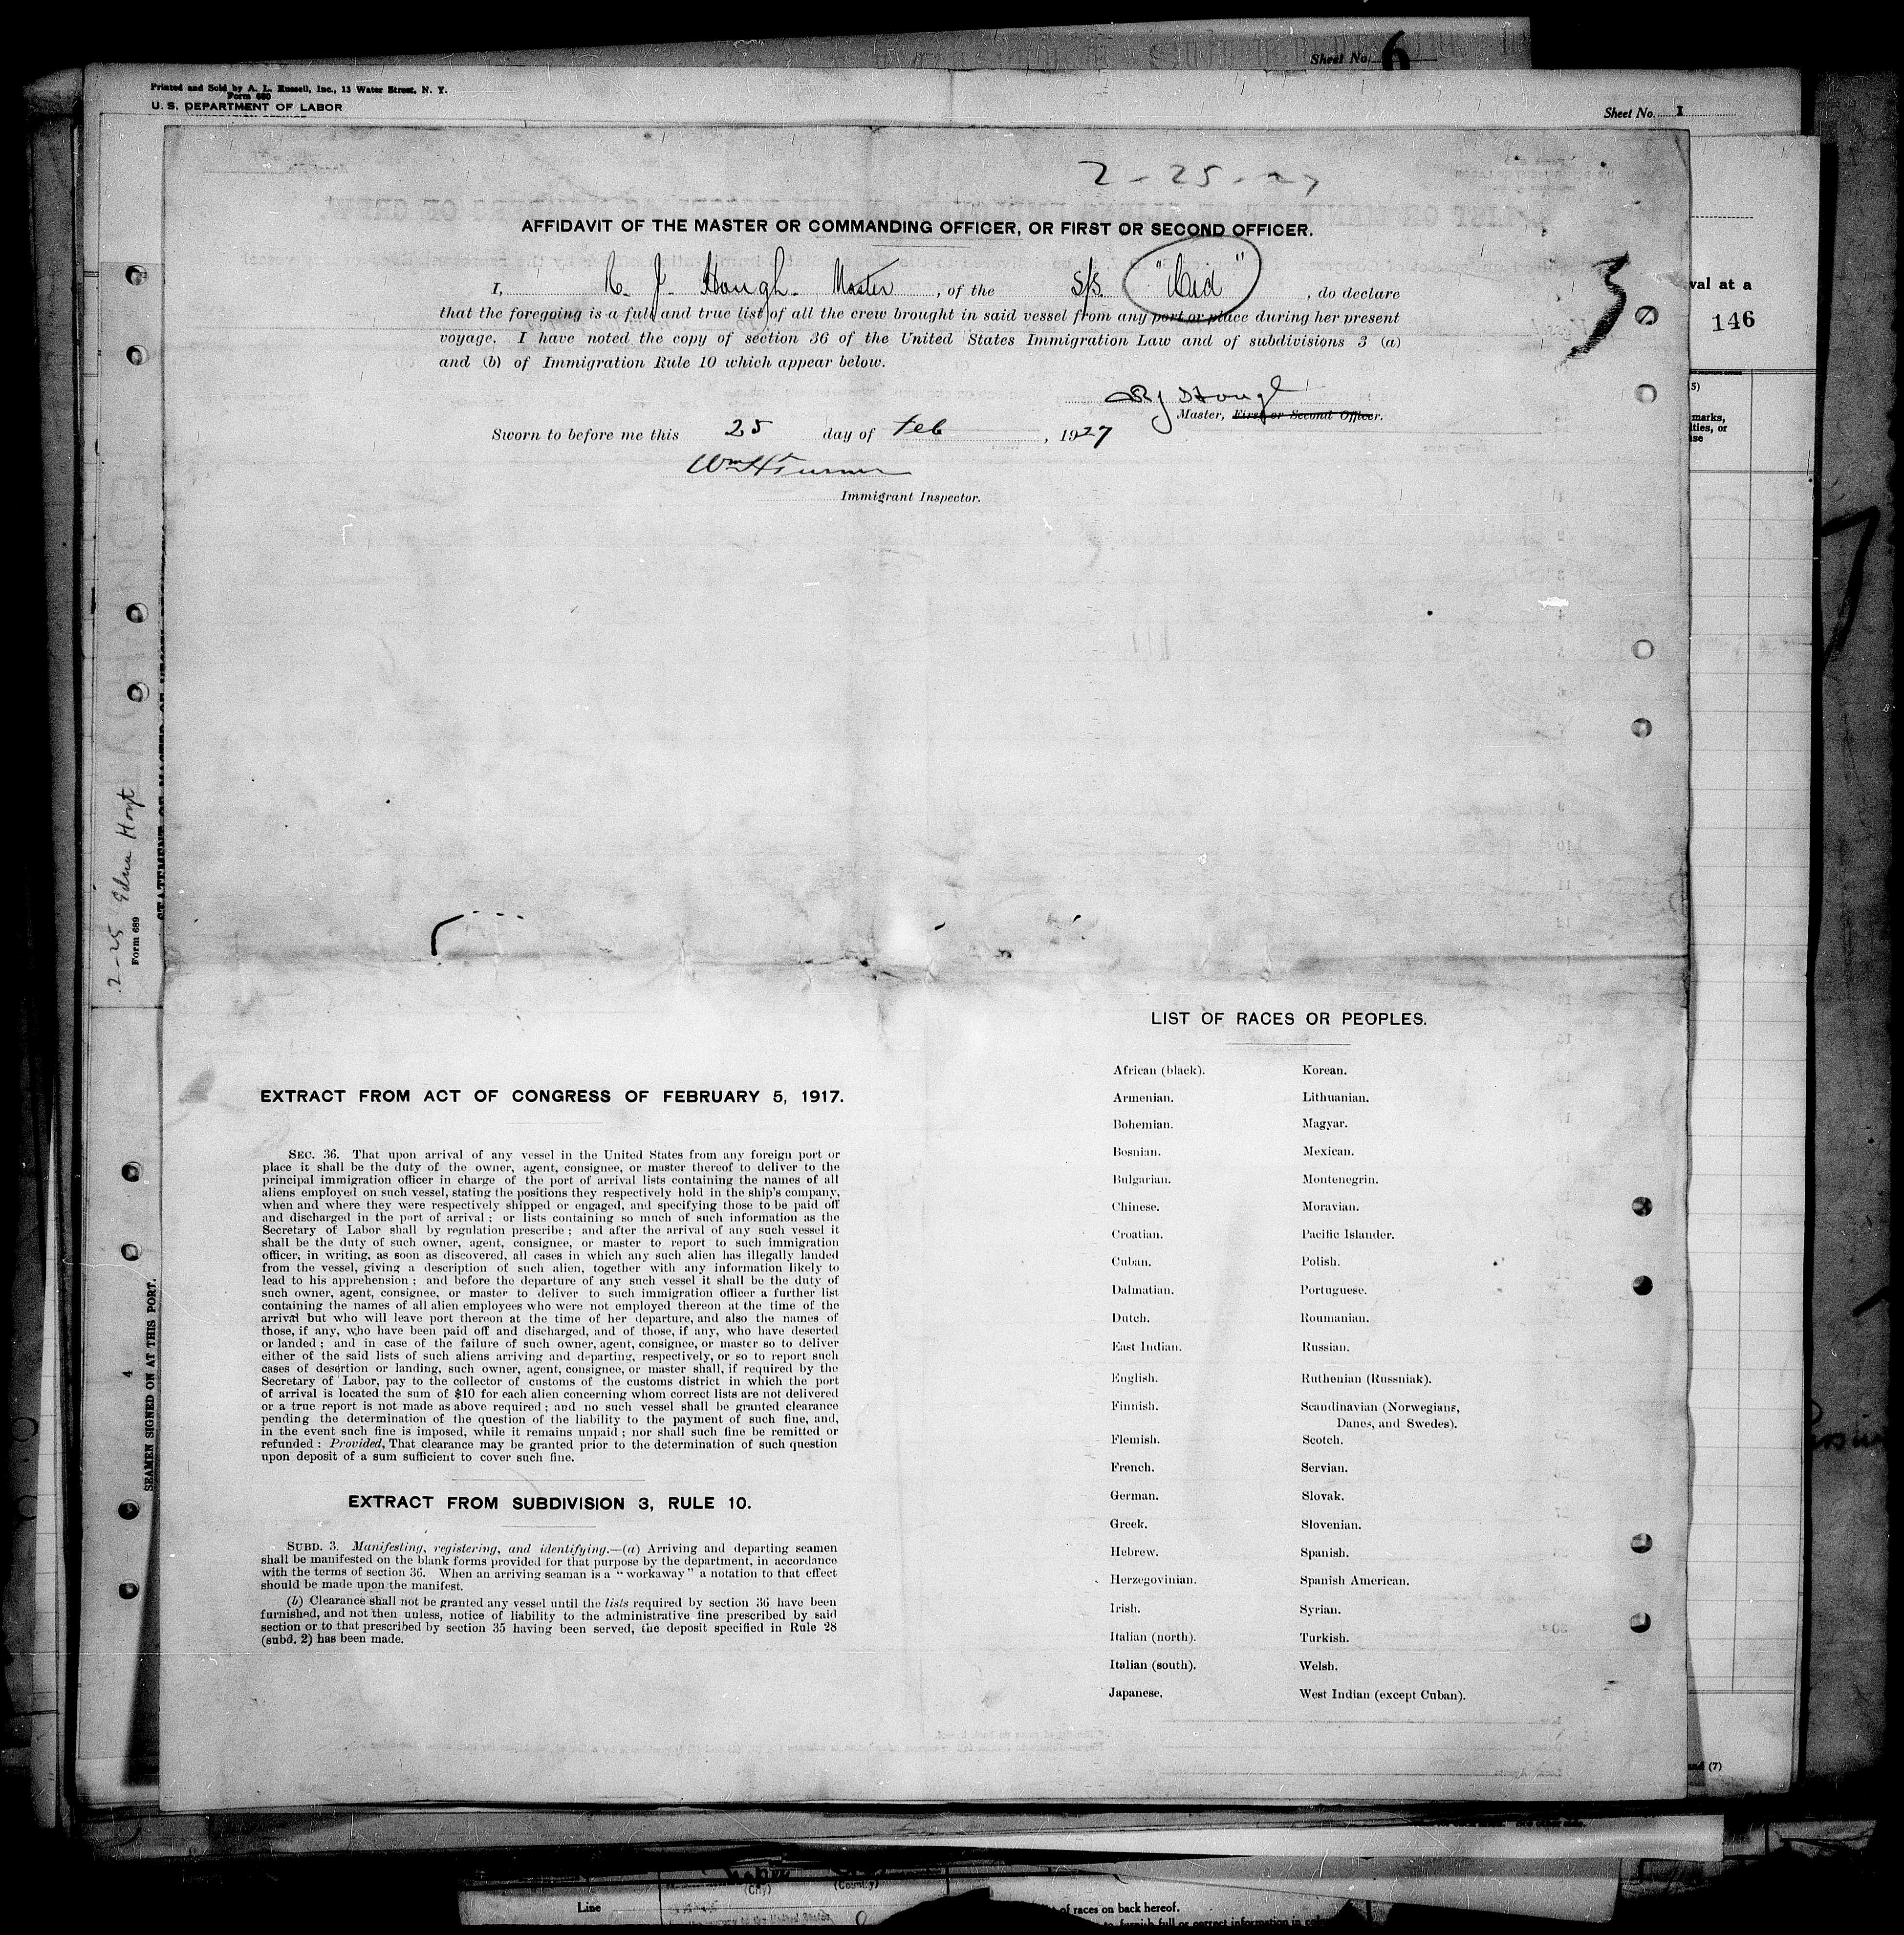 Sheet No. 6
Printed and Sold by A. L. Russell, Inc., 13 Water Street, N. Y.
Form 680
U. S. DEPARTMENT OF LABOR
Sheet No. 1
2-25-27
AFFIDAVIT OF THE MASTER OR COMMANDING OFFICER, OR FIRST OR SECOND OFFICER.
I, R. J. Hough. Master, of the S/S. "Cid", do declare
that the foregoing is a full and true list of all the crew brought in said vessel from any port or place during her present
voyage. I have noted the copy of section 36 of the United States Immigration Law and of subdivisions 3 (a)
and (b) of Immigration Rule 10 which appear below.
3
val at a
146
5)
marks,
ities, or
ise
R J Hough
Master, First or Second Officer.
Sworn to before me this 25 day of Feb, 1927
Wm H Turner
Immigrant Inspector.
2-25 Edna Hoyt
Form 689
SEAMEN SIGNED ON AT THIS PORT.
4
EXTRACT FROM ACT OF CONGRESS OF FEBRUARY 5, 1917.
SEC. 36. That upon arrival of any vessel in the United States from any foreign port or
place it shall be the duty of the owner, agent, consignee, or master thereof to deliver to the
principal immigration officer in charge of the port of arrival lists containing the names of all
aliens employed on such vessel, stating the positions they respectively hold in the ship's company,
when and where they were respectively shipped or engaged, and specifying those to be paid off
and discharged in the port of arrival; or lists containing so much of such information as the
Secretary of Labor shall by regulation prescribe; and after the arrival of any such vessel it
shall be the duty of such owner, agent, consignee, or master to report to such immigration
officer, in writing, as soon as discovered, all cases in which any such alien has illegally landed
from the vessel, giving a description of such alien, together with any information likely to
lead to his apprehension; and before the departure of any such vessel it shall be the duty of
such owner, agent, consignee, or master to deliver to such immigration officer a further list
containing the names of all alien employees who were not employed thereon at the time of the
arrival but who will leave port thereon at the time of her departure, and also the names of
those, if any, who have been paid off and discharged, and of those, if any, who have deserted
or landed; and in case of the failure of such owner, agent, consignee, or master so to deliver
either of the said lists of such aliens arriving and departing, respectively, or so to report such
cases of desertion or landing, such owner, agent, consignee, or master shall, if required by the
Secretary of Labor, pay to the collector of customs of the customs district in which the port
of arrival is located the sum of $10 for each alien concerning whom correct lists are not delivered
or a true report is not made as above required; and no such vessel shall be granted clearance
pending the determination of the question of the liability to the payment of such fine, and,
in the event such fine is imposed, while it remains unpaid; nor shall such fine be remitted or
refunded: Provided, That clearance may be granted prior to the determination of such question
upon deposit of a sum sufficient to cover such fine.
EXTRACT FROM SUBDIVISION 3, RULE 10.
SUBD. 3. Manifesting, registering, and identifying.—(a) Arriving and departing seamen
shall be manifested on the blank forms provided for that purpose by the department, in accordance
with the terms of section 36. When an arriving seaman is a "workaway" a notation to that effect
should be made upon the manifest.
(b) Clearance shall not be granted any vessel until the lists required by section 36 have been
furnished, and not then unless, notice of liability to the administrative fine prescribed by said
section or to that prescribed by section 35 having been served, the deposit specified in Rule 28
(subd. 2) has been made.
LIST OF RACES OR PEOPLES.
African (black). Korean.
Armenian. Lithuanian.
Bohemian. Magyar.
Bosnian. Mexican.
Bulgarian. Montenegrin.
Chinese. Moravian.
Croatian. Pacific Islander.
Cuban. Polish.
Dalmatian. Portuguese.
Dutch. Roumanian.
East Indian. Russian.
English. Ruthenian (Russniak).
Finnish. Scandinavian (Norwegians,
Danes, and Swedes).
Flemish. Scotch.
French. Servian.
German. Slovak.
Greek. Slovenian.
Hebrew. Spanish.
Herzegovinian. Spanish American.
Irish. Syrian.
Italian (north). Turkish.
Italian (south). Welsh.
Japanese. West Indian (except Cuban).
and (7)
(City) (Country)
Line
of races on back hereof.
to furnish full or correct information in